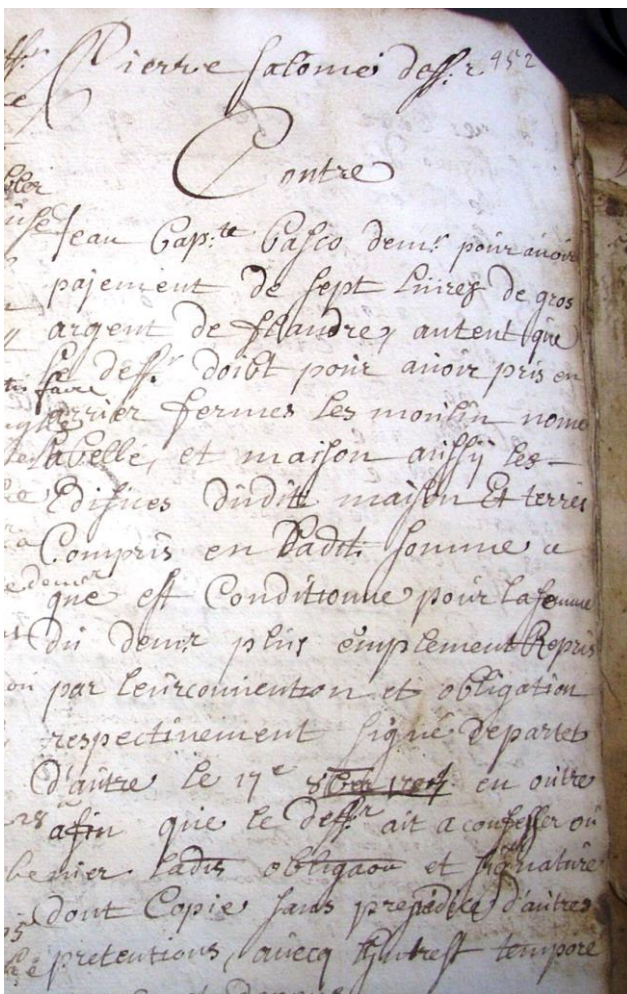 Pierre Salomé deff.r 452
Contre
Jean Bap.te Casco dem.r pour avoir
pajement de sept livres de gros
argent de flandre, autent que
le deff.r doibt pour avoir pris en
arrier fermes les moulin nome
Labelle, et maison aussÿ les
Edifices dudit maison Et terres
Compris en Ladit. somme a
que est Conditionne pour la femme
du demr plus emplement Repris
par leur convention et obligation
respectivement signé de part et
d'autre le 17e 8bre en outre
afin que le deff.r ait a confesser ou
benier ladit obligaon et signature
dont Copie sans prejudice d'autres
pretentions, avecq tempore